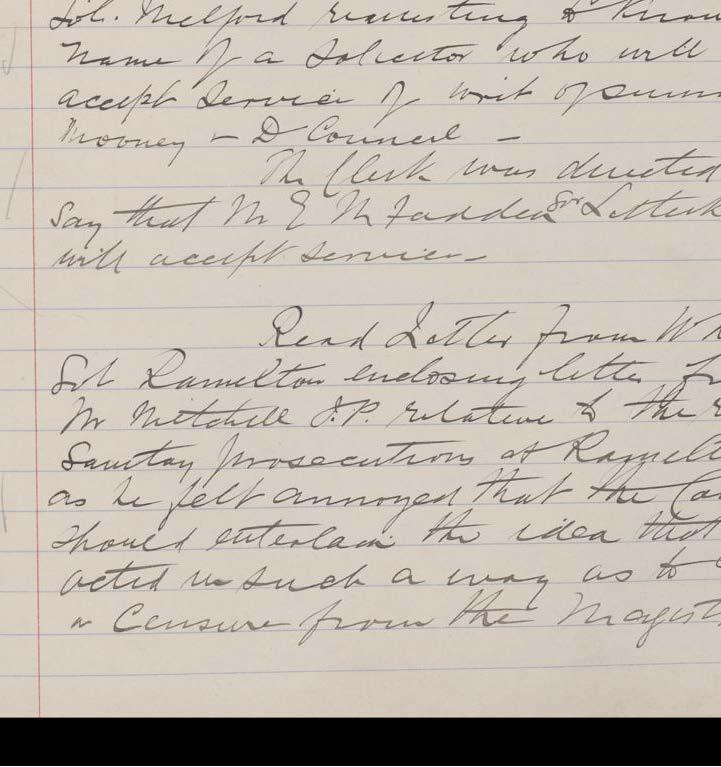 Sol. Melford requesting to know
name of a Solicitor who will
accept service of writ of summ
Mooney - D Council -
The Clerk was directed
say that Mr E McFadden Sor Letterk
will accept service -
Read Letter from W
Sol Ramelton enclosing letter fr
Mr Mitchell J.P. relative to the
Sanitary prosecutions at Ramelt
as he felt annoyed that the Co
should entertain the idea that
acted in such a way as to
a Censure from the Magist